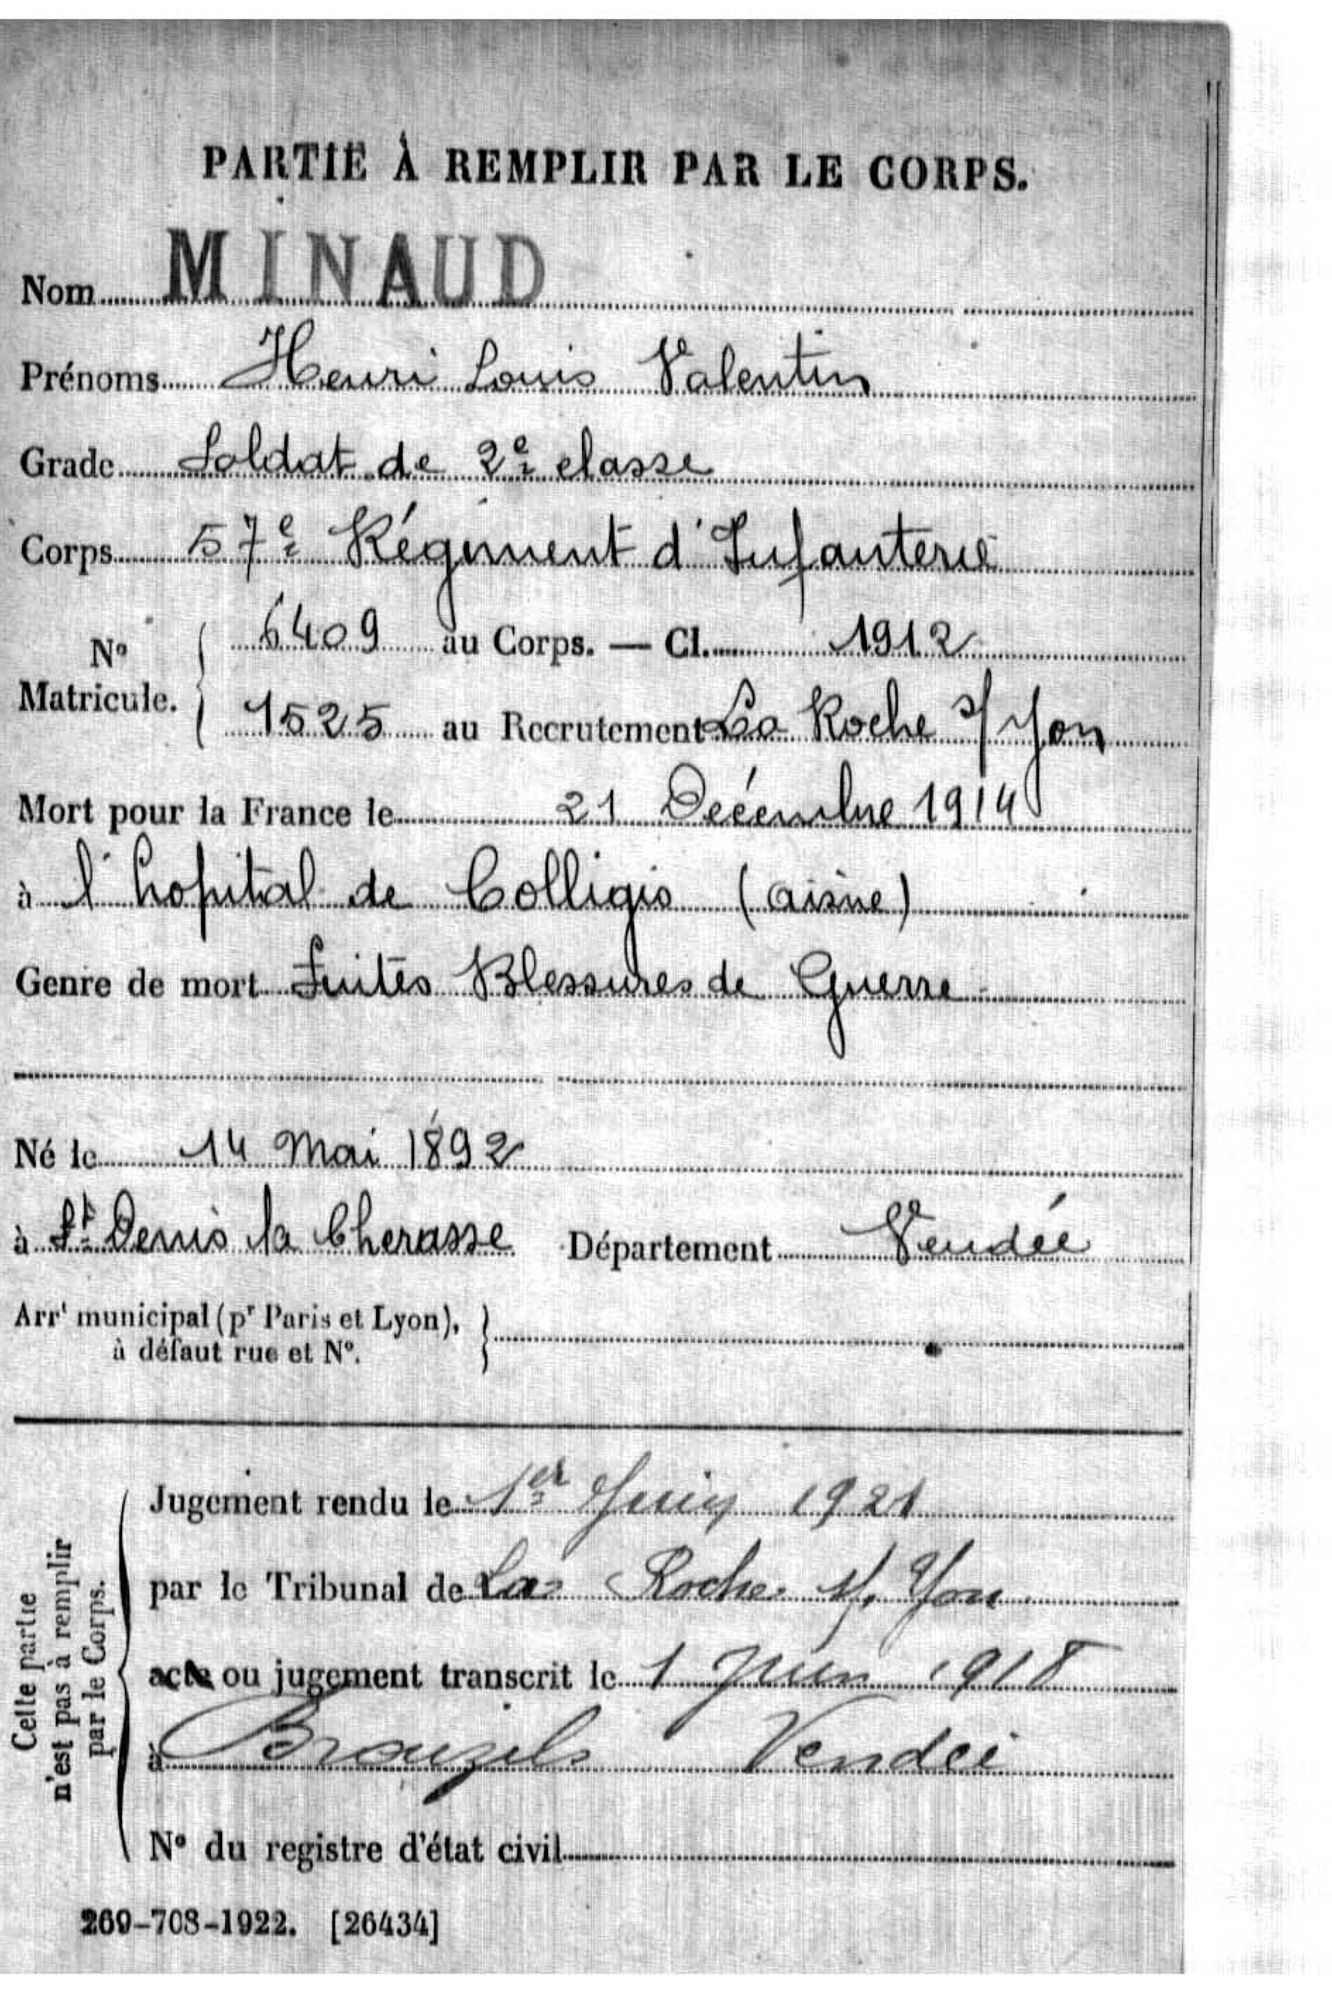 PARTIE À REMPLIR PAR LE CORPS.
Nom MINAUD
Prénoms Henri Louis Valentin
Grade Soldat de 2e classe
Corps 57e Régiment d'Infanterie
No Matricule. { 6409 au Corps. — Cl. 1912
1525 au Recrutement La Roche s/Yon
Mort pour la France le 21 Décembre 1914
à l'hopital de Colligis (aisne)
Genre de mort Suites Blessures de Guerre
Né le 14 Mai 1892
à St Denis la Cherasse Département Vendée
Arrt municipal (pr Paris et Lyon), }
à défaut rue et No.
Cette partie
n'est pas à remplir
par le Corps.
Jugement rendu le 1er Juin 1921
par le Tribunal de La Roche s/ Yon
acte ou jugement transcrit le 1 Juin 1918
à Brouzils Vendée
No du registre d'état civil
269-708-1922. [26434]